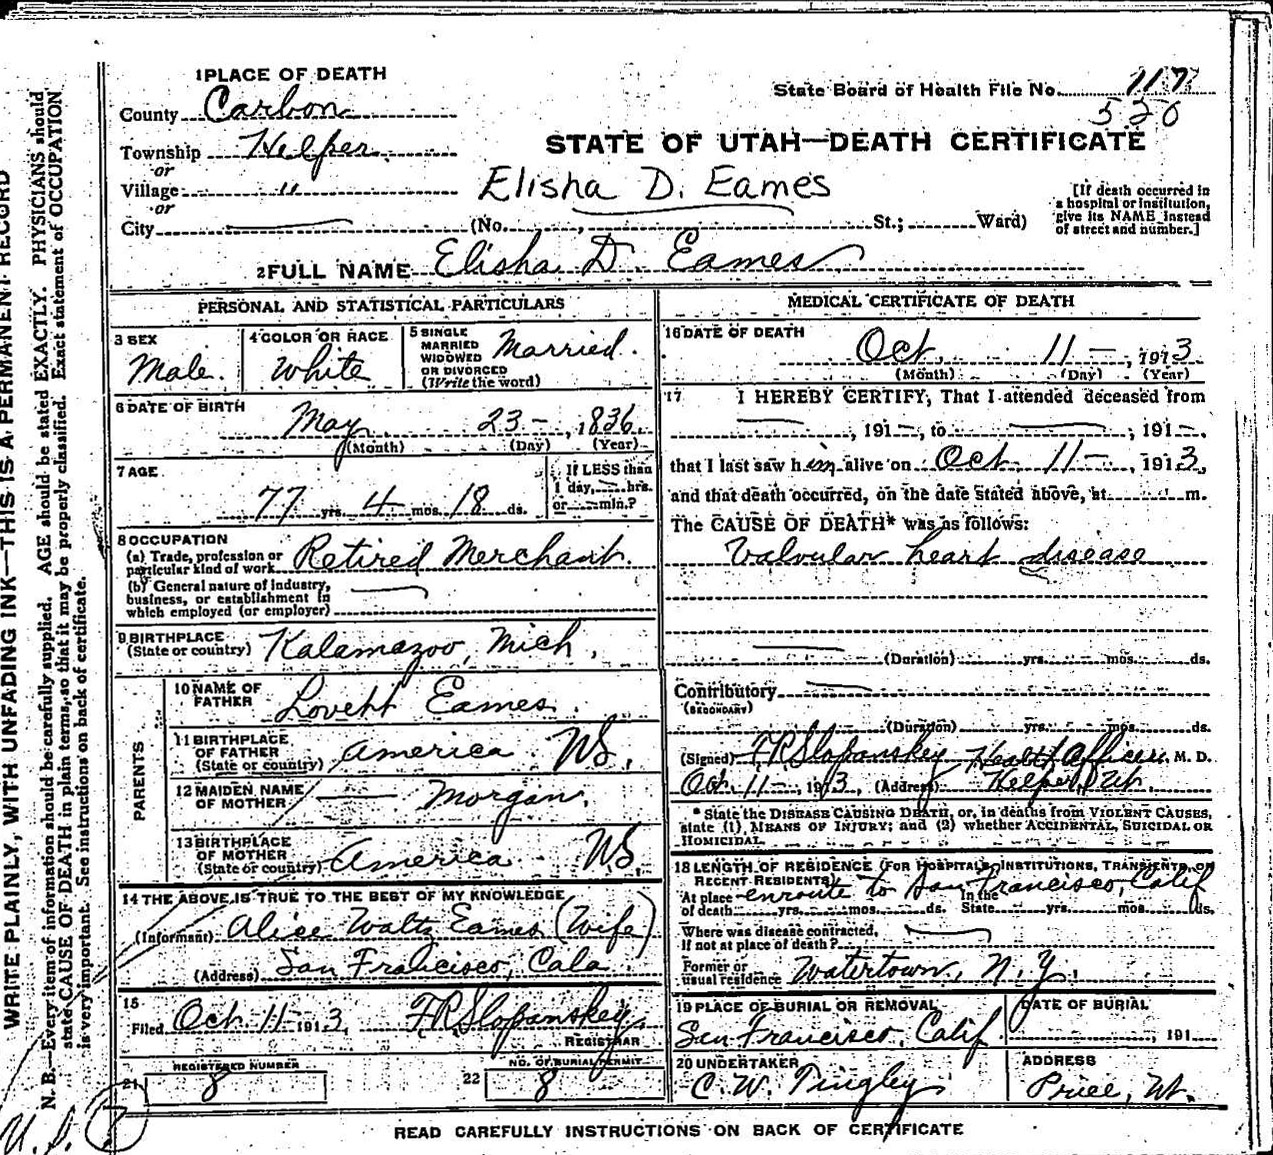 1 PLACE OF DEATH
County Carbon
Township Helper
or
Village "
or
City
State Board of Health File No. 117
520
STATE OF UTAH—DEATH CERTIFICATE
Elisha D. Eames
[If death occurred in
a hospital or institution,
give its NAME instead
of street and number.]
(No. , St.; Ward)
2 FULL NAME Elisha D. Eames
PERSONAL AND STATISTICAL PARTICULARS
3 SEX
Male.
4 COLOR OR RACE
White
5 SINGLE
MARRIED
WIDOWED
OR DIVORCED
(Write the word)
Married.
6 DATE OF BIRTH
May 23-, 1836
(Month) (Day) (Year)
7 AGE
77 yrs. 4 mos. 18 ds.
If LESS than
1 day, hrs.
or min.?
8 OCCUPATION
(a) Trade, profession or
particular kind of work Retired Merchant.
(b) General nature of industry,
business, or establishment in
which employed (or employer)
9 BIRTHPLACE
(State or country) Kalamazoo, Mich.
PARENTS
10 NAME OF
FATHER Lovett Eames.
11 BIRTHPLACE
OF FATHER
(State or country) America
12 MAIDEN NAME
OF MOTHER — Morgan.
13 BIRTHPLACE
OF MOTHER
(State or country) America
14 THE ABOVE IS TRUE TO THE BEST OF MY KNOWLEDGE
(Informant) Alice Waltz Eames (Wife)
(Address) San Francisco, Cala.
15
Filed Oct 11- 1913, F R Slopanskey
REGISTRAR
21 REGISTERED NUMBER
8
22 NO. OF BURIAL PERMIT
8
MEDICAL CERTIFICATE OF DEATH
16 DATE OF DEATH
Oct. 11-, 1913
(Month) (Day) (Year)
17 I HEREBY CERTIFY, That I attended deceased from
—, 191—, to —, 191—,
that I last saw him alive on Oct. 11-, 1913,
and that death occurred, on the date stated above, at m.
The CAUSE OF DEATH* was as follows:
Valvular heart disease
(Duration) yrs. mos. ds.
Contributory
(SECONDARY)
(Duration) yrs. mos. ds.
(Signed) F R Slopanskey Health Officer, M. D.
Oct. 11-, 1913, (Address) Helper, Ut.
* State the DISEASE CAUSING DEATH, or, in deaths from VIOLENT CAUSES,
state (1) MEANS OF INJURY; and (2) whether ACCIDENTAL, SUICIDAL OR
HOMICIDAL.
18 LENGTH OF RESIDENCE (FOR HOSPITALS, INSTITUTIONS, TRANSIENTS, OR
RECENT RESIDENTS)
enroute to San Francisco, Calif
At place In the
of death yrs. mos. ds. State yrs. mos. ds.
Where was disease contracted,
If not at place of death?
Former or
usual residence Watertown, N.Y.
19 PLACE OF BURIAL OR REMOVAL
San Francisco, Calif
DATE OF BURIAL
, 191
20 UNDERTAKER
C. W. Tingley
ADDRESS
Price, Ut.
READ CAREFULLY INSTRUCTIONS ON BACK OF CERTIFICATE
WRITE PLAINLY, WITH UNFADING INK—THIS IS A PERMANENT RECORD
N. B.—Every item of information should be carefully supplied. AGE should be stated EXACTLY. PHYSICIANS should
state CAUSE OF DEATH in plain terms, so that it may be properly classified. Exact statement of OCCUPATION
is very important. See instructions on back of certificate.